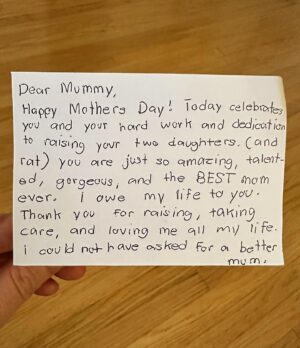 Dear Mummy,
Happy Mothers Day! Today celebrates
you and your hard work and dedication
to raising your two daughters. (and
rat) you are just so amazing, talent-
ed, gorgeous, and the BEST mom
ever. i owe my life to you.
Thank you for raising, taking
care, and loving me all my life.
i could not have asked for a better
mum.